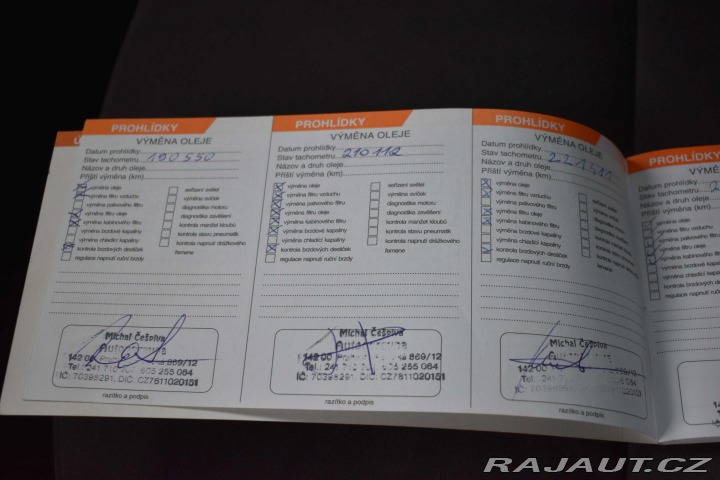 PROHLÍDKY
VÝMĚNA OLEJE
Datum prohlídky
Stav tachometru 190 550
Názov a druh oleje
Příští výměna (km)
výměna oleje
výměna filtru vzduchu
výměna palivového filtru
výměna filtru oleje
výměna kabinového filtru
výměna brzdové kapaliny
výměna chladící kapaliny
kontrola brzdových destiček
regulace napnutí ruční brzdy
seřízení světel
výměna svíček
diagnostika motoru
diagnostika zavěšení
kontrola manžet kloubů
kontrola stavu pneumatik
kontrola napnutí drážkového
řemene
Michal Češpiva
142 00
869/12
Tel.: 241 710 605 255 064
IČ: 70398291, DIČ: CZ7811020151
razítko a podpis
PROHLÍDKY
VÝMĚNA OLEJE
Datum prohlídky
Stav tachometru 210 112
Názov a druh oleje
Příští výměna (km)
výměna oleje
výměna filtru vzduchu
výměna palivového filtru
výměna filtru oleje
výměna kabinového filtru
výměna brzdové kapaliny
výměna chladící kapaliny
kontrola brzdových destiček
regulace napnutí ruční brzdy
seřízení světel
výměna svíček
diagnostika motoru
diagnostika zavěšení
kontrola manžet kloubů
kontrola stavu pneumatik
kontrola napnutí drážkového
řemene
Michal Češpiva
142 00
869/12
Tel.: 241 605 255 064
IČ: 70398291, DIČ: CZ7811020151
razítko a podpis
PROHLÍDKY
VÝMĚNA OLEJE
Datum prohlídky
Stav tachometru 221511
Názov a druh oleje
Příští výměna (km)
výměna oleje
výměna filtru vzduchu
výměna palivového filtru
výměna filtru oleje
výměna kabinového filtru
výměna brzdové kapaliny
výměna chladící kapaliny
kontrola brzdových destiček
regulace napnutí ruční brzdy
seřízení světel
výměna svíček
diagnostika motoru
diagnostika zavěšení
kontrola manžet kloubů
kontrola stavu pneumatik
kontrola napnutí drážkového
řemene
Michal Češpiva
142 00
razítko a podpis
PROHLÍDKY
Datum prohlídky
Stav tachometru
Názov a druh oleje
Příští výměna (km)
výměna oleje
výměna filtru vzduchu
výměna palivového filtru
výměna filtru oleje
výměna kabinového filtru
výměna brzdové kapaliny
výměna chladící kapaliny
kontrola brzdových
regulace napnutí
RAJAUT.CZ